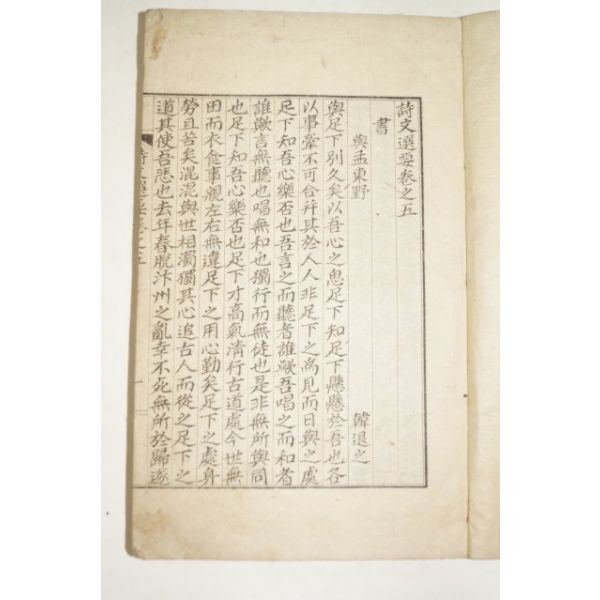 詩文選要卷之五
書
與孟東野 韓退之
與足下別久矣以吾心之思足下知足下懸懸於吾也各
以事牽不可合并其於人人非足下之爲見而日與之處
足下知吾心樂否也吾言之而聽者誰歟吾唱之而和者
誰歟言無聽也唱無和也獨行而無徒也是非無所與同
也足下知吾心樂否也足下才高氣淸行古道處今世無
田而衣食事親左右無違足下之用心勤矣足下之處身
勞且苦矣混混與世相濁獨其心追古人而從之足下之
道其使吾悲也去年春脫汴州之亂幸不死無所於歸遂
詩文選要卷之五